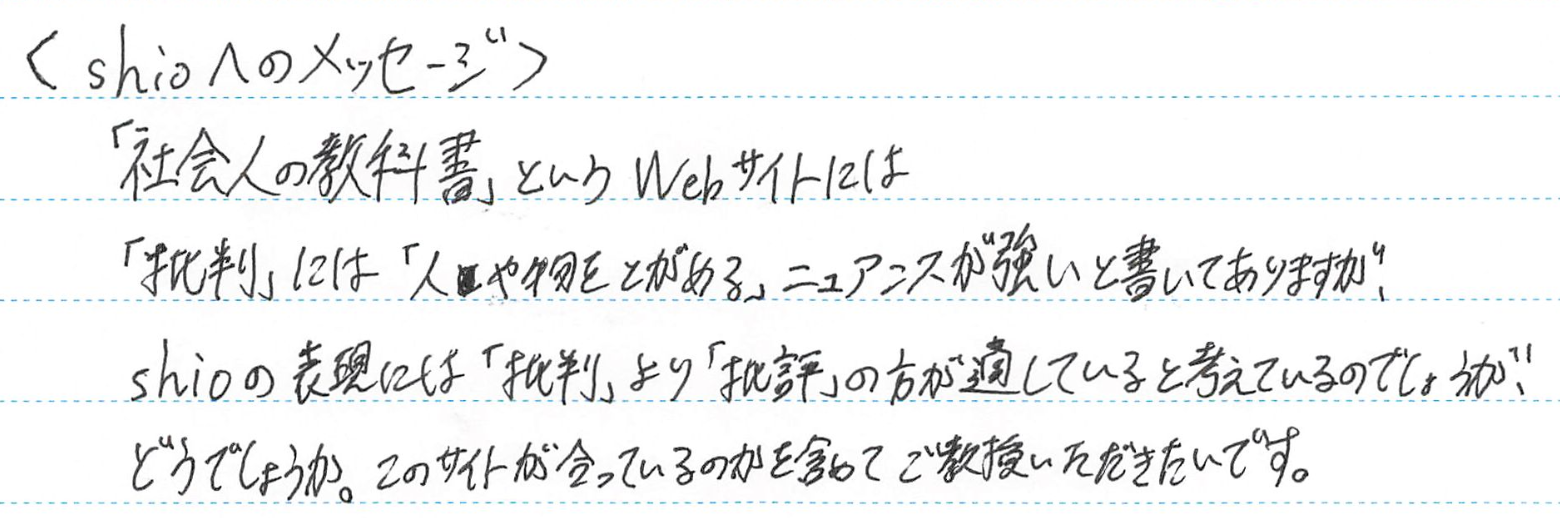 <shioへのメッセージ>
「社会人の教科書」という Webサイトには
「批判」には「人や物をとがめる」ニュアンスが強いと書いてありますが、
shioの表現には「批判」より「批評」の方が適していると考えているのでしょうが、
どうでしょうか。このサイトが合っているのかを含めてご教授いただきたいです。